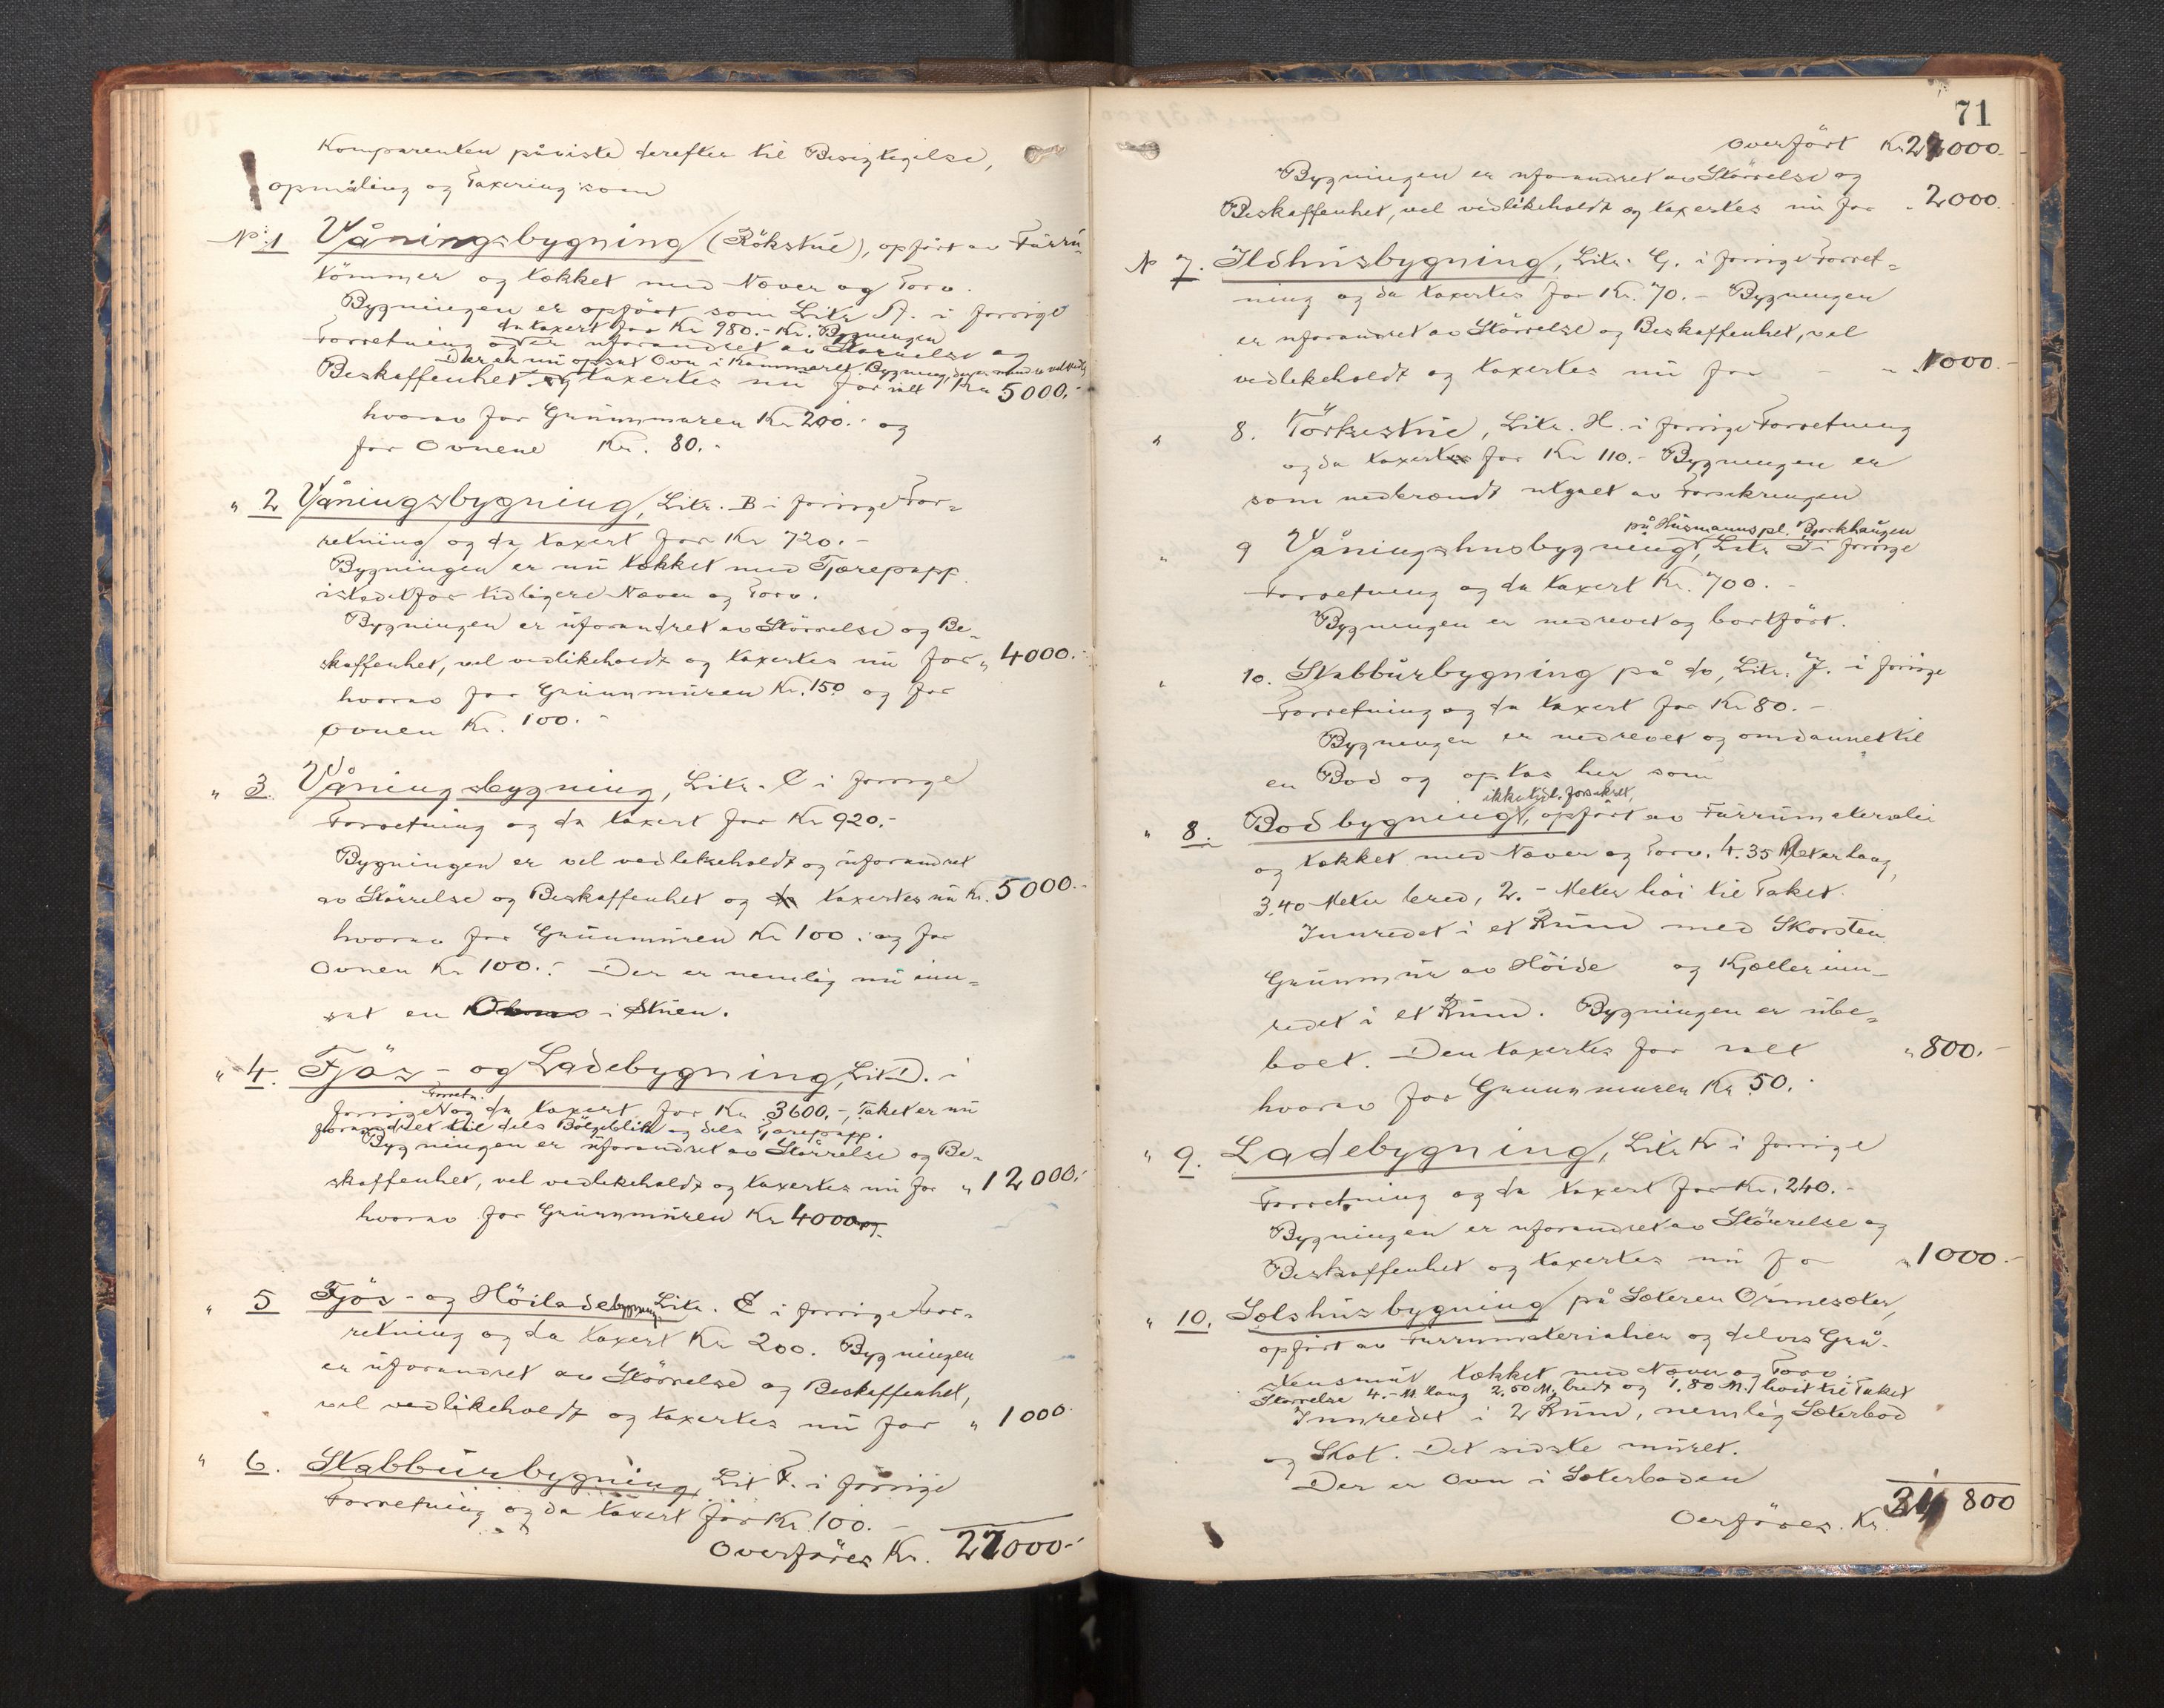 Komparenten påviste derefter til Besigtigelse,
opmåling og Taxering som
No. 1 Våningsbygning (Rökstue), opfört av Furru-
tömmer og tækket med Næver og Torv.
Bygningen er opfört som Litr A. i forrige
da taxert for Kr 980.- Kr. Bygningen
Forretning og er uforandret av Størrelse og
Der er nu opsat Ovn i Kammeret. Bygning
Beskaffenhet og taxertes nu for alt Kr 5000.-
hvorav for Grunnmuren Kr 200.- og
for Ovnene Kr. 80.-
" 2 Våningsbygning, Litr. B i forrige For-
retning og da taxert for Kr 720.-
Bygningen er nu tækket med Tjærepapp
istedetfor tidligere Næver og Torv.
Bygningen er uforandret av Störrelse og Be-
skaffenhet, vel vedlikeholdt og taxertes nu for " 4000.-
hvorav for Grunnmuren Kr. 150 og for
ovnen Kr. 100.-
" 3. Våningsbygning, Litr. C i forrige
Forretning og da taxert for Kr 920.-
Bygningen er vel vedlikeholdt og uforandret
av Störrelse og Beskaffenhet og da taxertes nu Kr. 5000.-
hvorav for Grunnmuren Kr 100. og for
Ovnen Kr 100.- Der er nemlig nu inn-
sat en i Stuen.
" 4. Fjös- og Ladebygning, Lit D. i
Forretn.
forrige og da taxert for Kr 3600.-, Taket er nu
forandret til dels Bölgeblikk og dels Tjærepapp.
Bygningen er uforandret av Störrelse og Be-
skaffenhet, vel vedlikeholdt og taxertes nu for " 12000.-
hvorav for Grunnmuren Kr 4000 og
" 5 Fjös- og Höiladebygning Litr. E i forrige For-
retning og da taxert Kr 200. Bygningen
er uforandret av Störrelse og Beskaffenhet,
vel vedlikeholdt og taxertes nu for " 1000
" 6. Stabbursbygning, Lit F. i forrige
Forretning og da taxert for Kr. 100.-
Overföres Kr. 27000.-
71
Overfört Kr 27000.-
Bygningen er uforandret av Störrelse og
Beskaffenhet, vel vedlikeholdt og taxertes nu for " 2000.
No 7. Ildhusbygning, Litr. G. i forrige Forret-
ning og da taxertes for Kr. 70.- Bygningen
er uforandret av Störrelse og Beskaffenhet, vel
vedlikeholdt og taxertes nu for - " 1000.-
" 8. Törkestue, Litr. H. i forrige Forretning
og da taxertes for Kr 110.- Bygningen er
som nedbrændt utgaet av Forsikringen
på Husmannspl. Bjørkhaugen
" 9 Våningshusbygning, Litr I i forrige
Forretning og da taxert Kr. 700.-
Bygningen er nedrevet og bortfört.
" 10. Stabbursbygning på do, Litr. J. i forrige
Forretning og da taxert for Kr 80.-
Bygningen er nedrevet og omdannet til
en Bod og optas her som
ikke tidl. forsikret,
" 8. Bodbygning, opfört av Furrumaterialer
og tækket med Næver og Torv. 4.35 Meter lang,
3.40 Meter bred, 2.- Meter höi til Taket.
Innredet i et Rum med Skorsten
Grunnmur av Höide og Kjæller inn-
redet i et Rum. Bygningen er ube-
boet. Den taxertes for alt " 800.-
hvorav for Grunnmuren Kr 50.-
" 9. Ladebygning, Litr K i forrige
Forretning og da taxert for Kr. 240.-
Bygningen er uforandret av Störrelse og
Beskaffenhet og taxertes nu for " 1000.-
" 10. Sælshusbygning på Sæteren Ormesæter,
opfört av Furrumaterialier og delvis Grå-
stensmur tækket med Næver og Torv.
Störrelse 4.- M. lang 2.50 M. bredt og 1.80 M. höit til Taket
Innredet i 2 Rum, nemlig Sæterbod
og Skot. Det sidste muret.
Der er Ovn i Sæterboden
Oerföres. Kr. 800